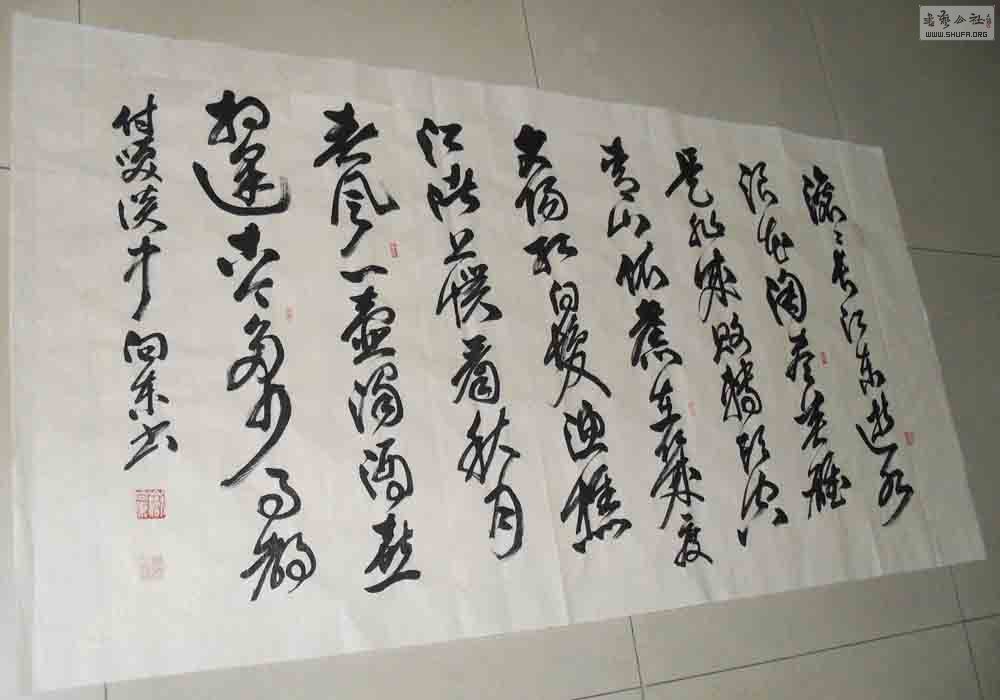 滚滚长江东逝水
浪花淘尽英雄
是非成败转头空
青山依旧在几度
夕阳红白发渔樵
江渚上惯看秋月
春风一壶浊酒喜
相逢古今多少事都
付笑谈中 向东书
书艺公社
WWW.SHUFA.ORG